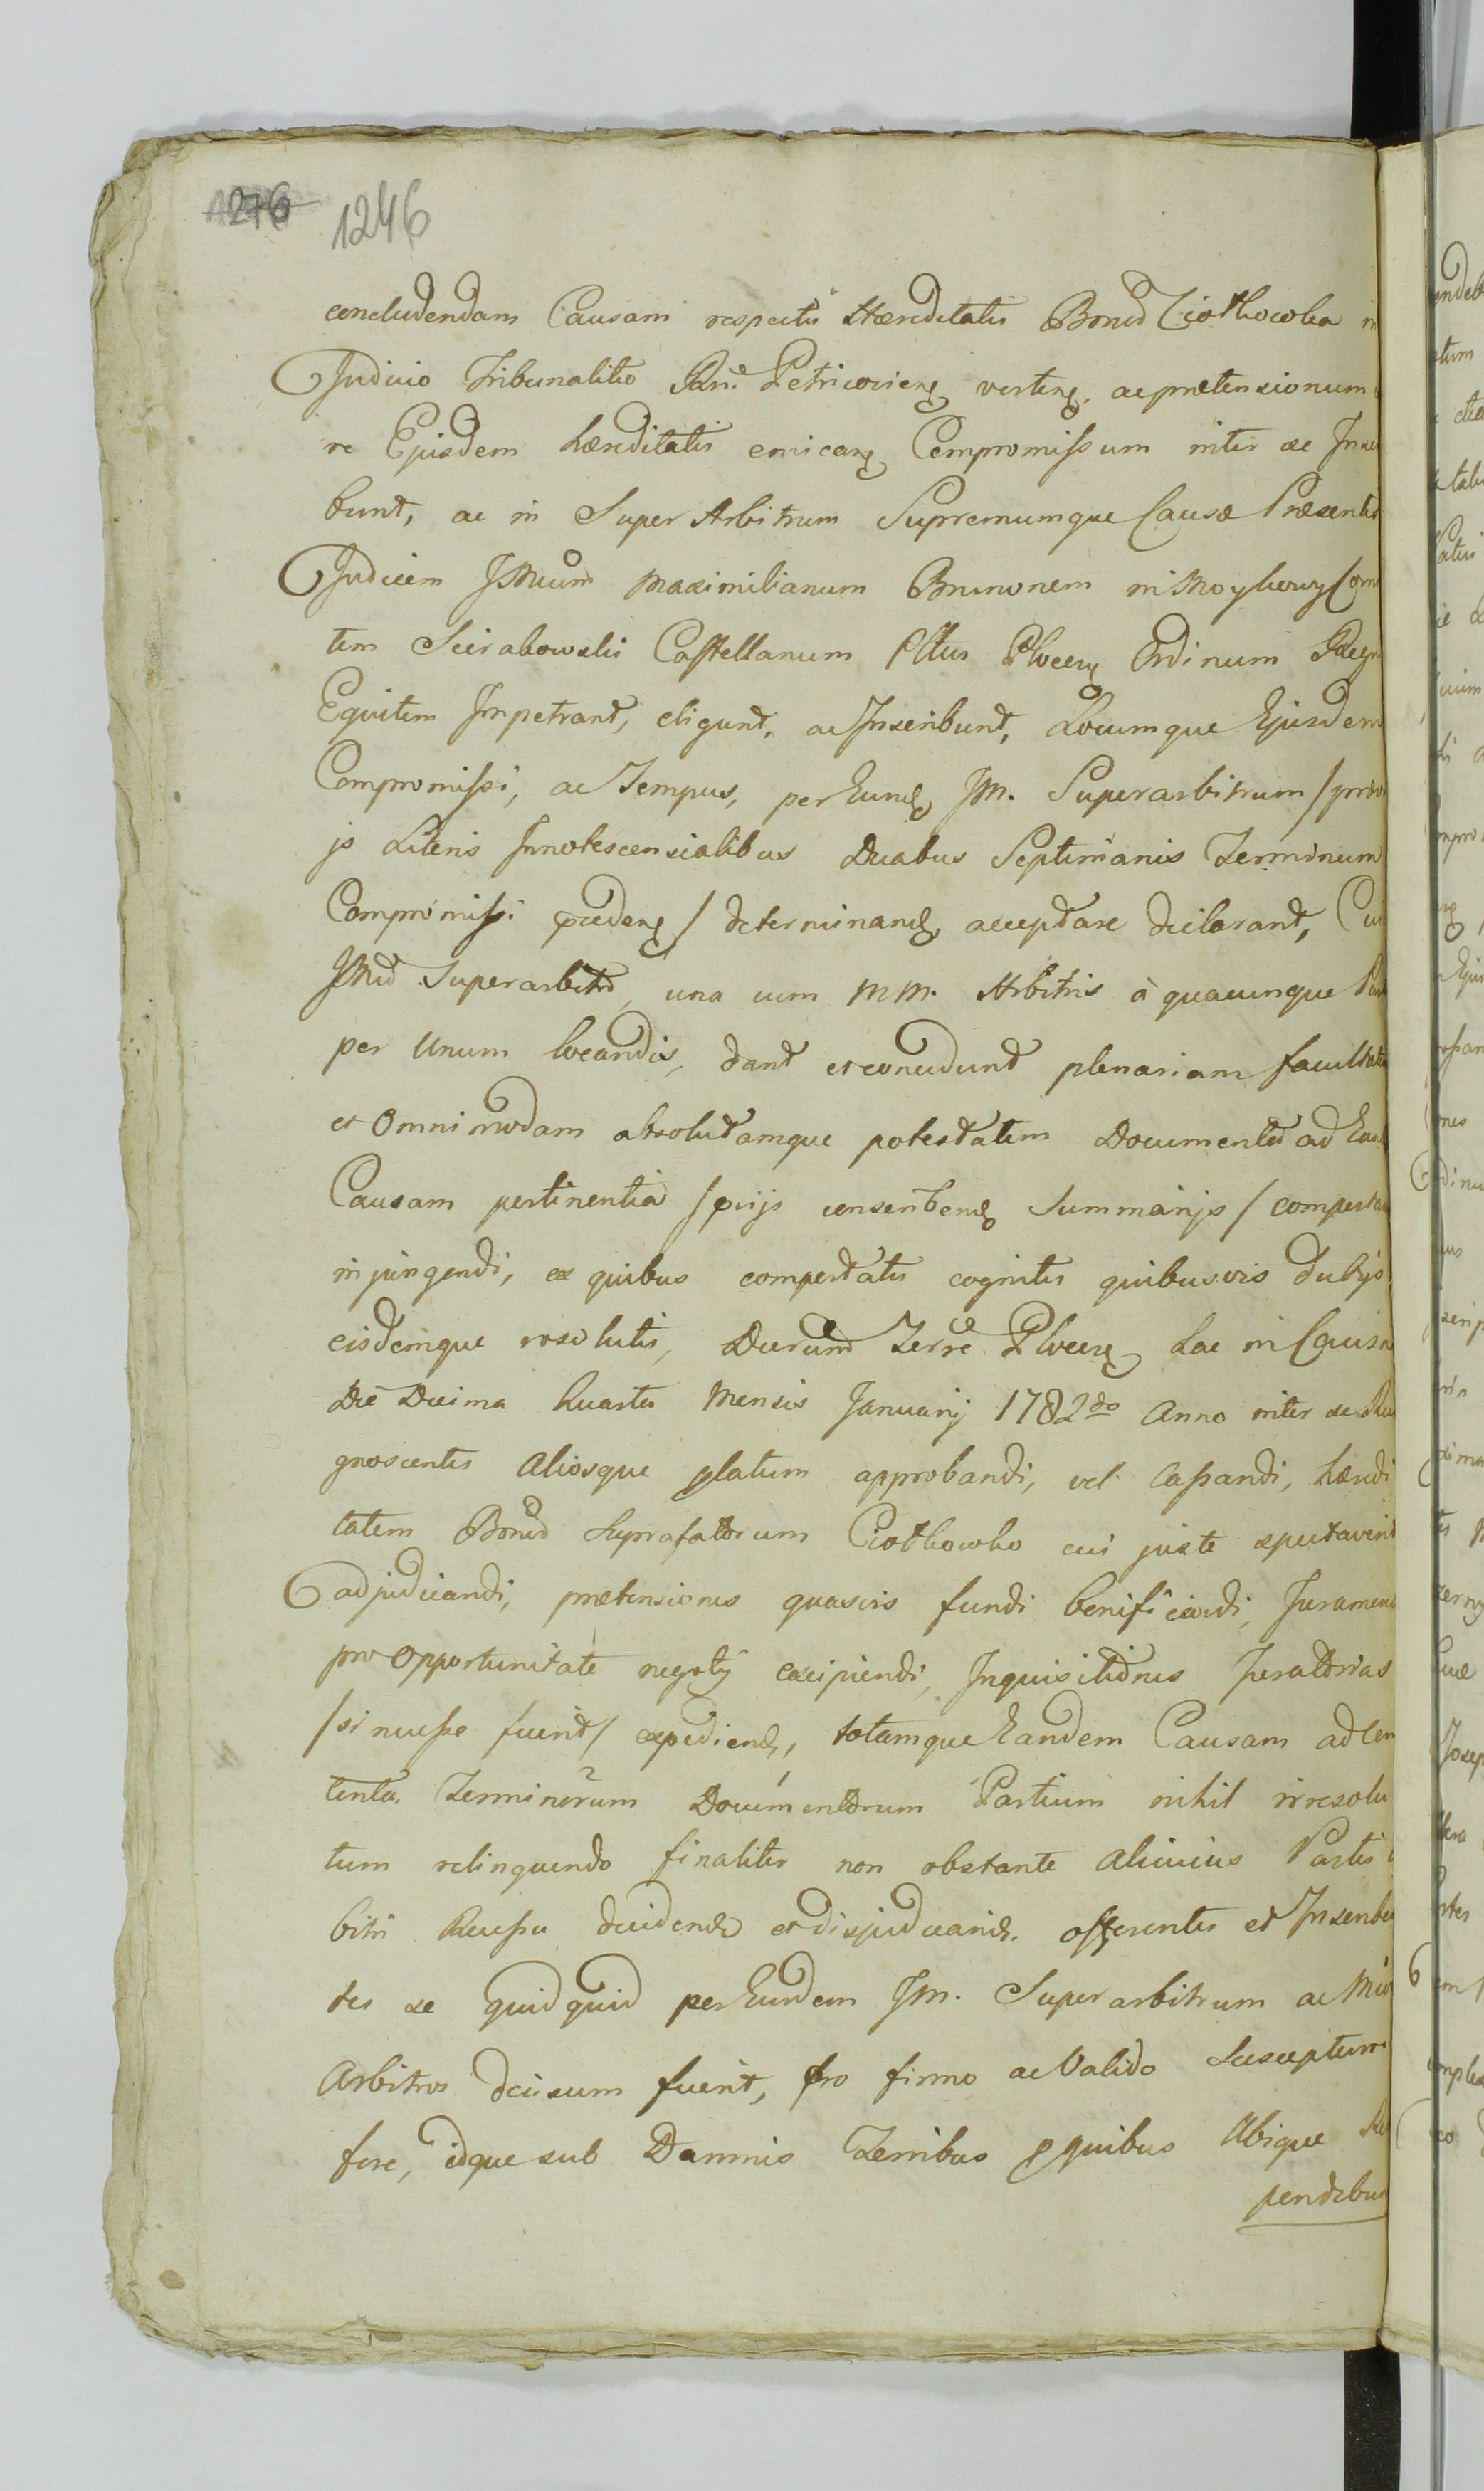 1276 1246
concludendam Causam respectu Hæreditatis Bonor Ciołkowka in
Judicio Tribunalitio Rni Petricovien verten, ac prætensionum
re Ejusdem hæreditatis emican Compromissum inter se Inae
bunt, ac in Super Arbitrum Supremumque Causæ Præsentis
Judicem JMcum Maximilianum Brunonem in Moykowy Com
tem Sierakowski Castellanum Pltus Plocen Ordinum Regn
Equitem Impetrant, eligunt, ac Inscribunt, Locumque Ejusdem
Compromissi, ac Tempus, per Eund JM. Superarbitrum /
js Literis Innotescensialibus Duabus Septimanis Terminum
Compromissi præceden / determinand acceptare declarant, Cui
JMco Superarbitro, una cum MM. Arbitris à quacunque Par
per Unum locandis, dant et concedunt plenariam facultate
et Omnimodam absolutamque potestatem Documenta ad Ean
Causam pertinentia / prijs conscribend Summarijs / comporta
injungendi, ex quibus comportatis cognitis quibusvis dubijs
eisdemque resolutis, Decretum Terræ Plocen hac in Causa
Die Decima Quarta Mensis Januarij 1782do Anno inter se Rec
gnoscentes Aliosque platum approbandi, vel Cassandi, hæredi
tatem Bonor Suprafatorum Ciołkowko cui juste spectaverit
adjudicandi, prætensiones quasvis fundi benificandi, Jurament
pro Opportunitate negotij excipiendi, Inquisitiones Juratorias
/ si necesse fuerit / expediend, totamque Eandem Causam ad Con
tenta Terminorum Documentorum Partium nihil irresolu
tum relinquendo finaliter non obstante Alicuius Partis
bitri Recessu decidend et disjudicand. offerentes et Inscriben
tes se quidquid per Eundem JM. Superarbitrum ac
Arbitros decisum fuerit, pro firmo ac Valido Suscepturos
fore, idque sub Damnis Terribus pro quibus Ubique
pendebun